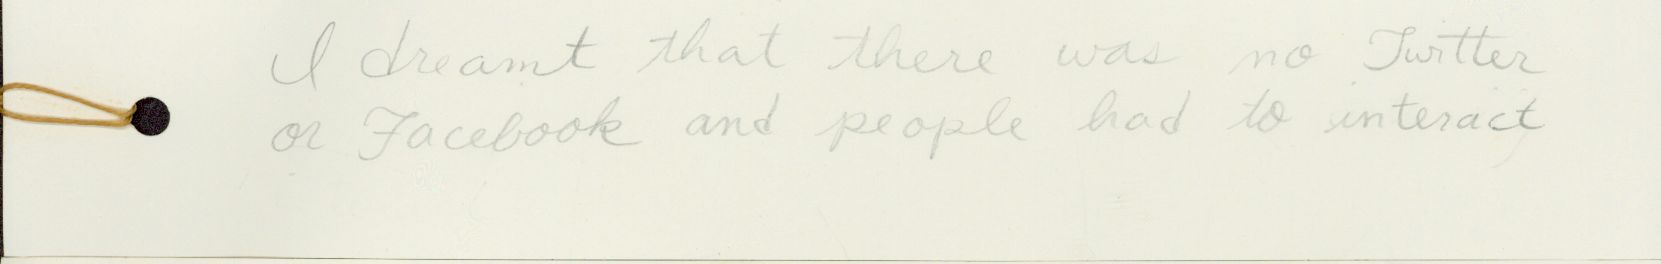 I dreamt that there was no Twitter
or Facebook and people had to interact